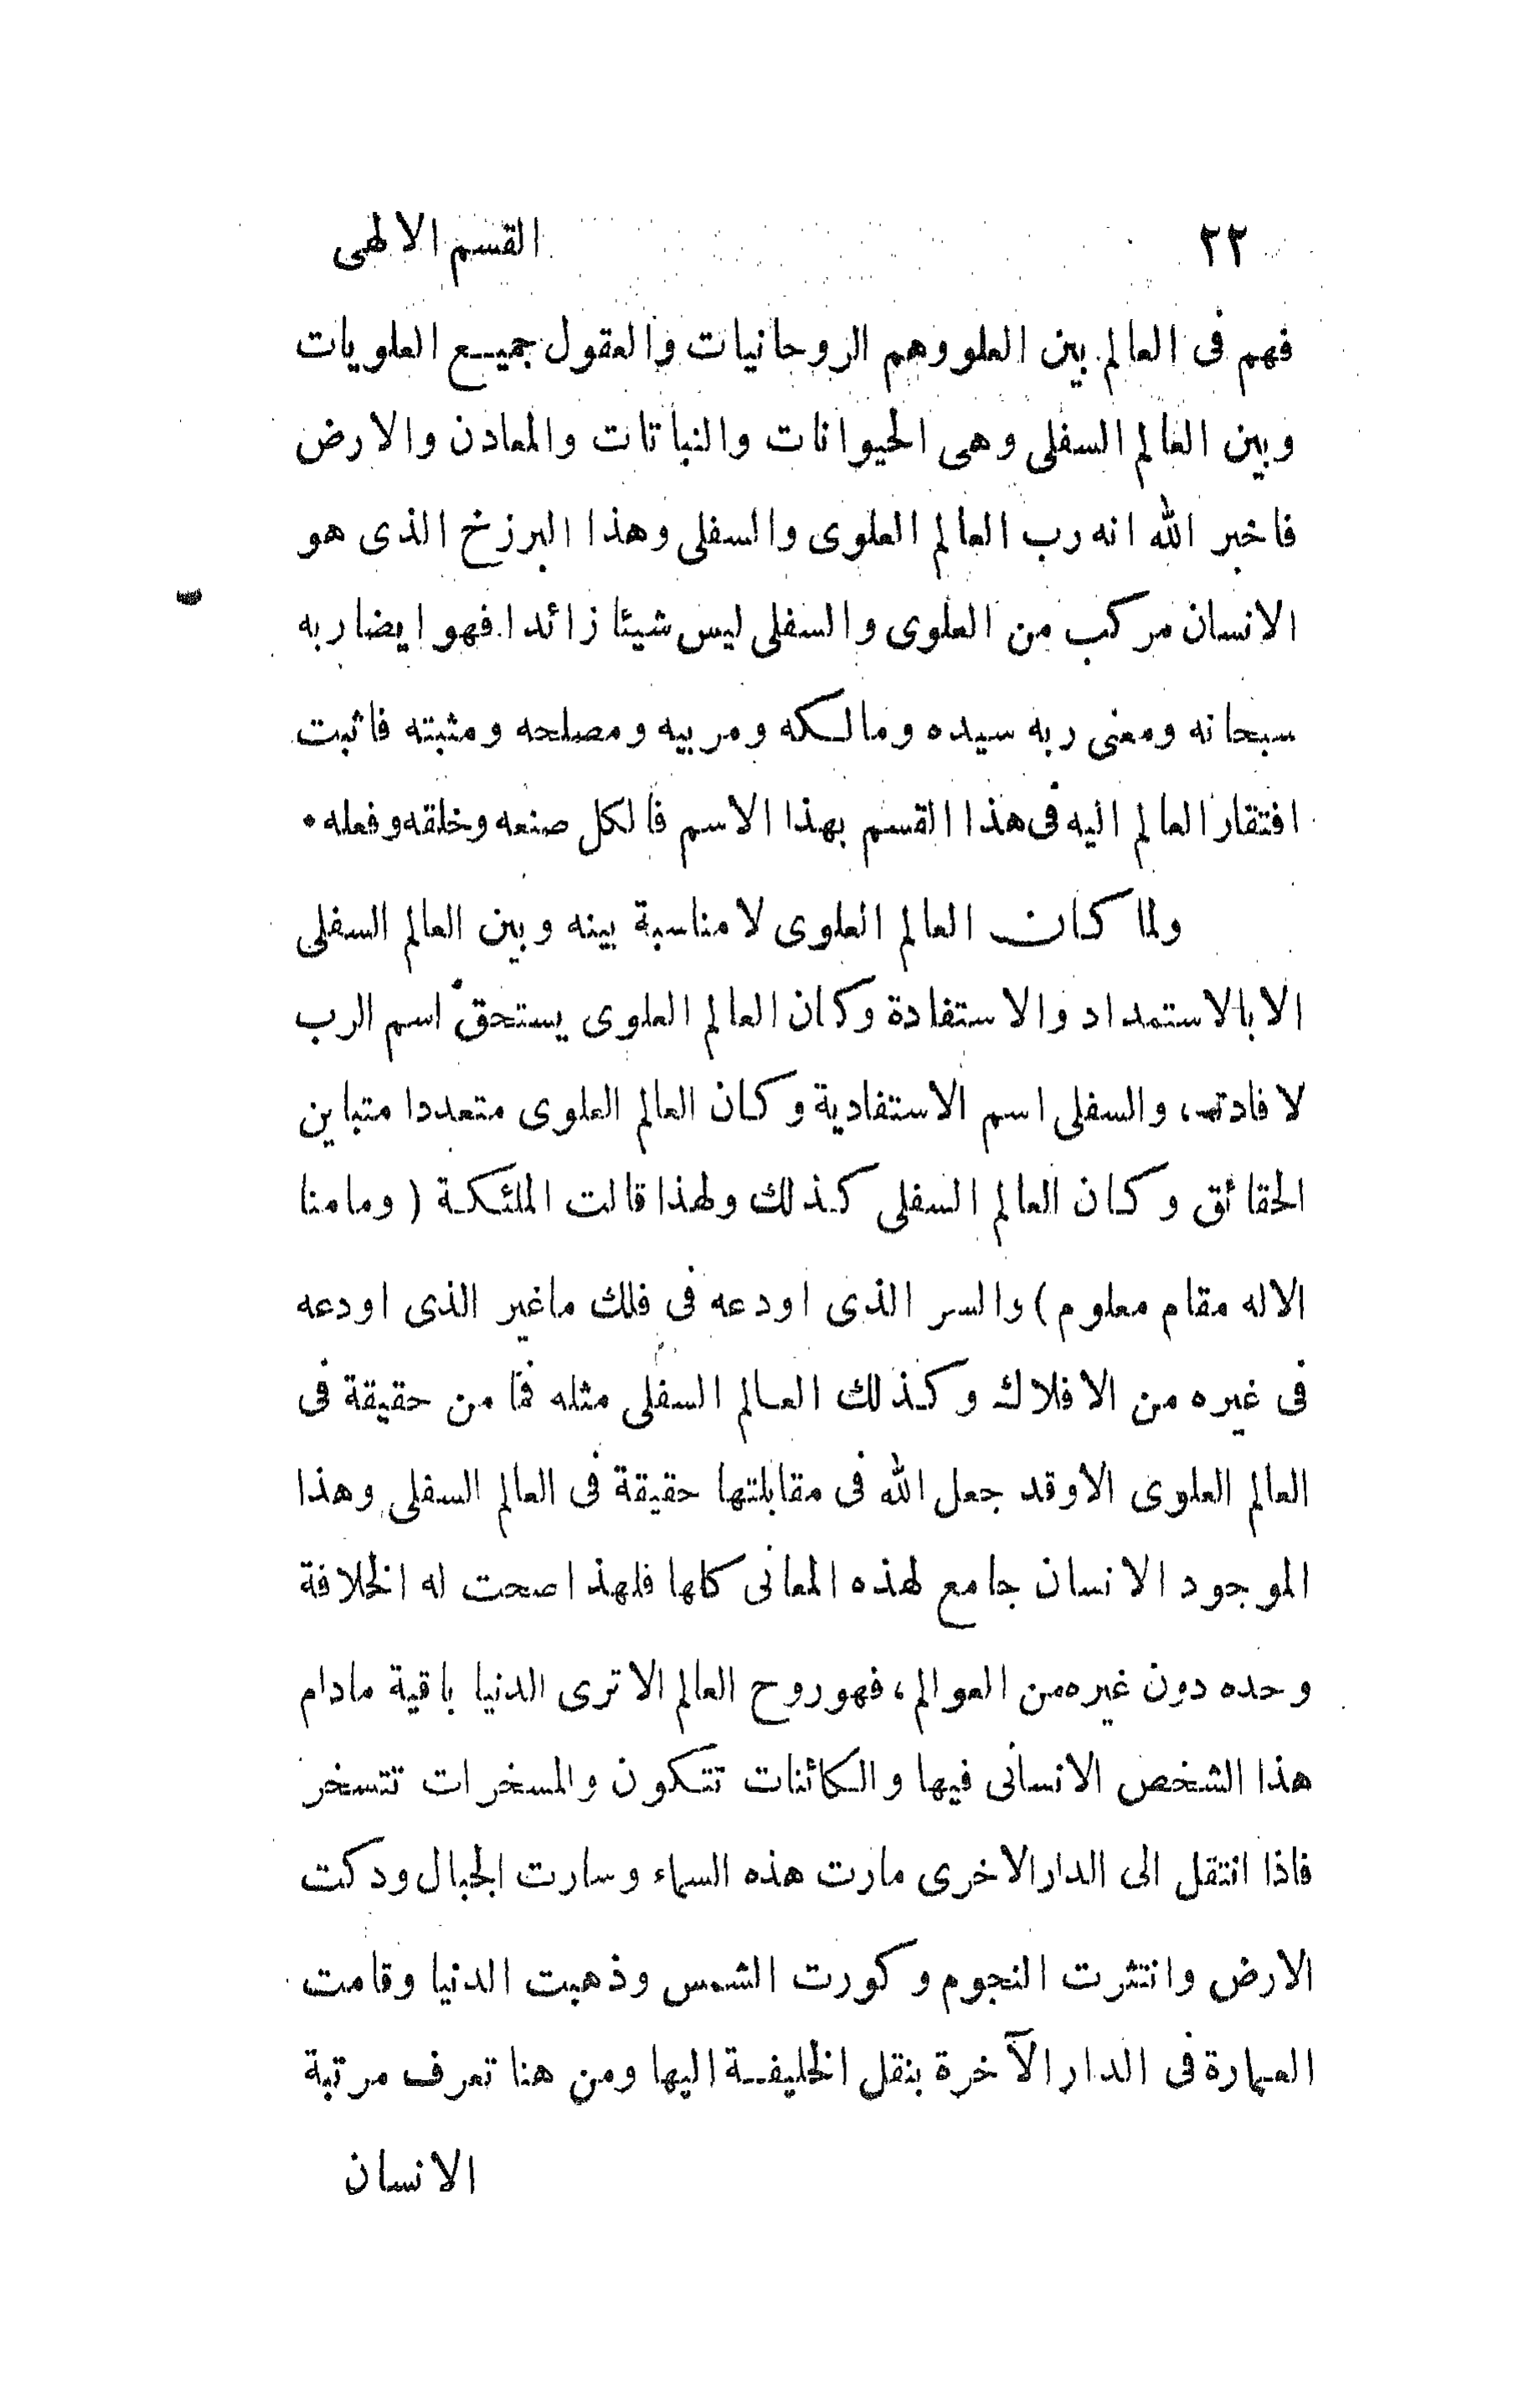 ٢٢ القسم الالهى
فهم فى العالم بين العلو وهم الروحانيات والعقول جميع العلويات
وبين العالم السفلى وهى الحيوانات والنباتات والمعادن والارض
فاخبر الله انه رب العالم العلوى والسفلى وهذا البرزخ الذى هو
الانسان مركب من العلوى والسفلى ليس شيئا زائدا فهو ايضا ربه
سبحانه ومعنى ربه سيده ومالكه ومربيه ومصلحه ومثبته فاثبت
افتقار العالم اليه فى هذا القسم بهذا الاسم فالكل صنعه وخلقه وفعله •
ولما كان العالم العلوى لا مناسبة بينه وبين العالم السفلى
الا بالاستمداد والاستفادة وكان العالم العلوى يستحق اسم الرب
لافادته، والسفلى اسم الاستفادية وكان العالم العلوى متعددا متباين
الحقائق وكان العالم السفلى كذلك ولهذا قالت الملئكة (وما منا
الا له مقام معلوم) والسر الذى اودعه فى فلك ما غير الذى اودعه
فى غيره من الافلاك وكذلك العالم السفلى مثله فما من حقيقة فى
العالم العلوى الا وقد جعل الله فى مقابلتها حقيقة فى العالم السفلى وهذا
الموجود الانسان جامع لهذه المعانى كلها فلهذا صحت له الخلافة
وحده دون غيره من العوالم، فهو روح العالم الا ترى الدنيا باقية مادام
هذا الشخص الانسانى فيها والكائنات تتكون والمسخرات تتسخر
فاذا انتقل الى الدار الاخرى مارت هذه السماء وسارت الجبال ودكت
الارض وانتثرت النجوم وكورت الشمس وذهبت الدنيا وقامت
العمارة فى الدار الآخرة بنقل الخليفة اليها ومن هنا تعرف مرتبة
الانسان